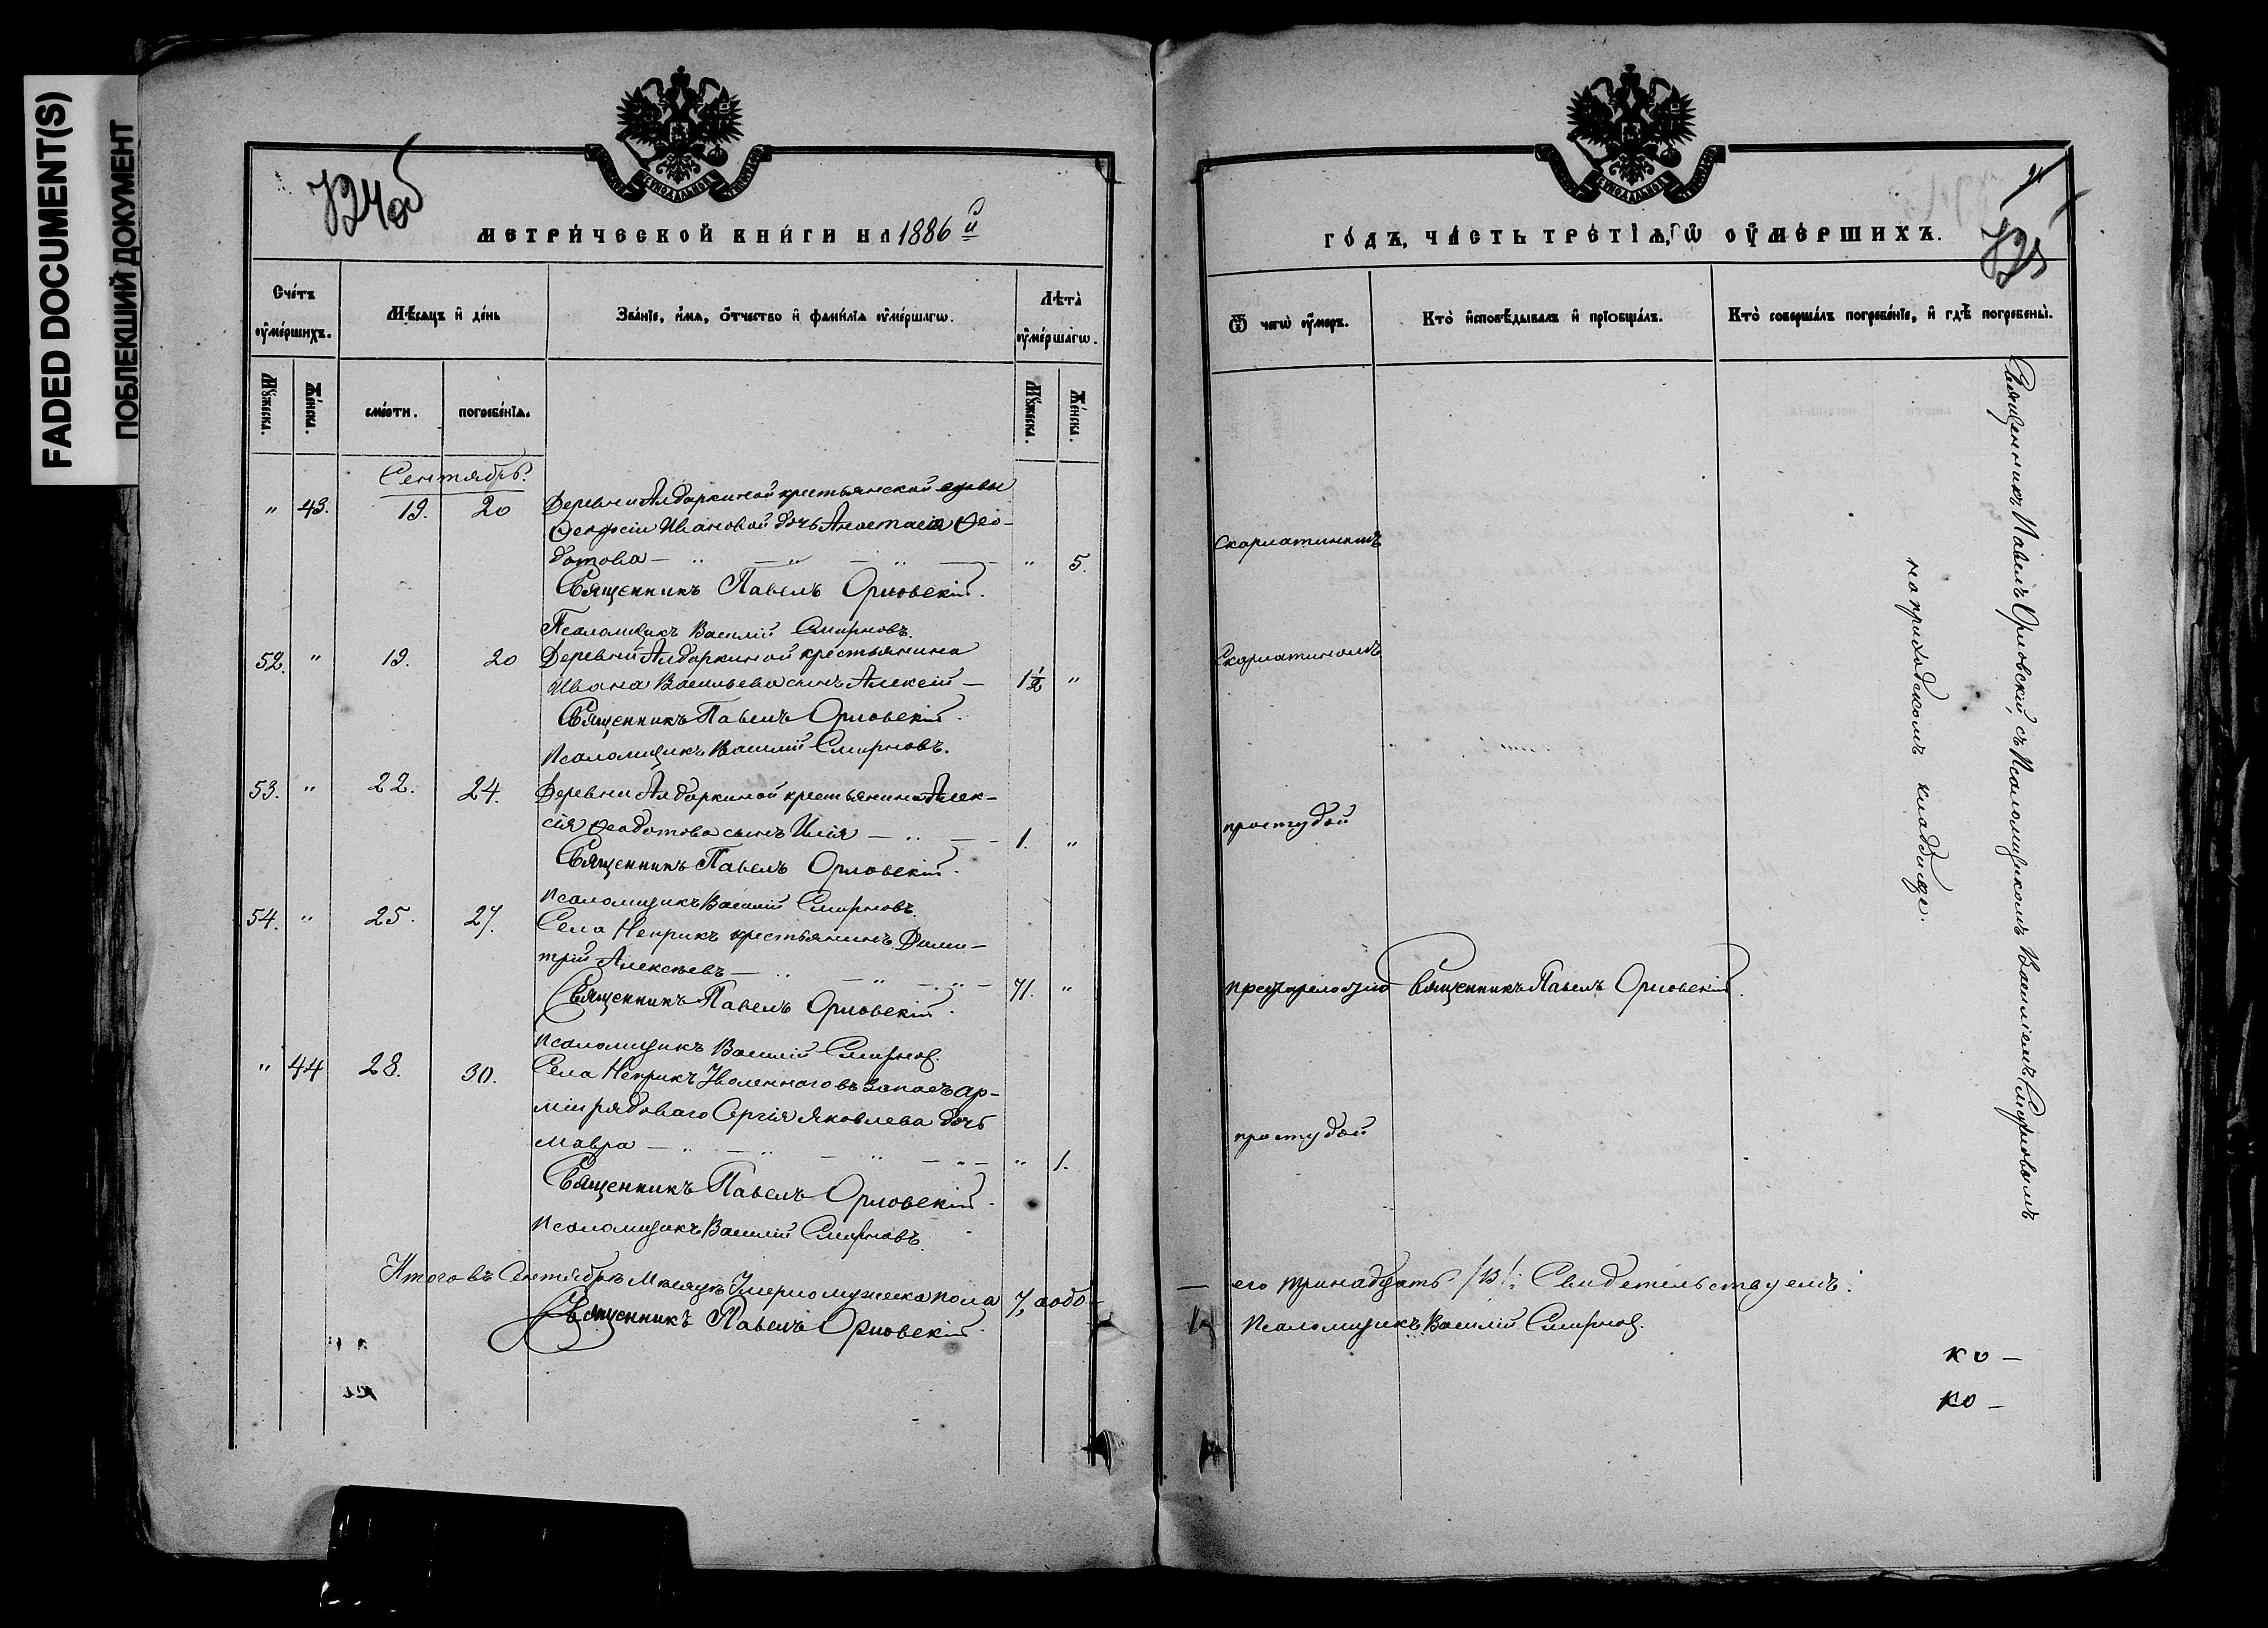 FADED DOCUMENT(S)
ПОБЛЕКШИЙ ДОКУМЕНТ
724об
МЕТРИЧЕСКОЙ КНИГИ НА 1886 й
Счетъ оумершихъ.
Мѣсяцъ и день
Званіе, имя, отчество и фамилія оумершагω.
Лѣта оумершагω.
Мужеска.
Женска.
смерти.
погребенія.
Мужеска.
Женска.
Сентябрь.
" 43. 19. 20 Деревни Алдаркиной крестьянской вдовы
Ѳеофсіи Ивановой дочь Анастасія Ѳео-
дотова — " — " — " — " 5.
Священникъ Павелъ Орловскій.
Псаломщикъ Василій Смирновъ.
52. " 19. 20 Деревни Алдаркиной крестьянина
Ивана Васильева сынъ Алексій — 1½ "
Священникъ Павелъ Орловскій.
Псаломщикъ Василій Смирновъ.
53. " 22. 24. Деревни Алдаркиной крестьянина Алек-
сія Ѳеодотова сынъ Илія — " — 1. "
Священникъ Павелъ Орловскій.
Псаломщикъ Василій Смирновъ.
54. " 25. 27. Села Неприкъ крестьянинъ Дими-
трій Алексѣевъ — " — " — " — 71. "
Священникъ Павелъ Орловскій.
Псаломщикъ Василій Смирнов.
" 44 28. 30. Села Неприкъ Уволеннаго въ запасъ ар-
міи рядоваго Сергія Яковлева дочь
Мавра — " — " — " — " — " 1.
Священникъ Павелъ Орловскій.
Псаломщикъ Василій Смирновъ.
Итого въ Сентябрѣ Мѣсяцѣ Умерло мужеска пола 7, обо-
Священникъ Павелъ Орловскій.
725
ГОДЪ, ЧАСТЬ ТРЕТІЯ, Ѡ ОУМЕРШИХЪ.
Ѿ чегω оумеръ.
Кто исповѣдывалъ и пріобщалъ.
Кто совершалъ погребеніе, и гдѣ погребены.
Скарлатиномъ
Скарлатиномъ
простудой
престарелостію Священникъ Павелъ Орловскій.
простудой
Священникъ Павелъ Орловскій, съ Псаломщикомъ Василіемъ Смирновымъ
на приходскомъ кладбище.
его тринадцать /13/: Свидетельствуемъ:
Псаломщикъ Василій Смирнов.
ко —
ко —